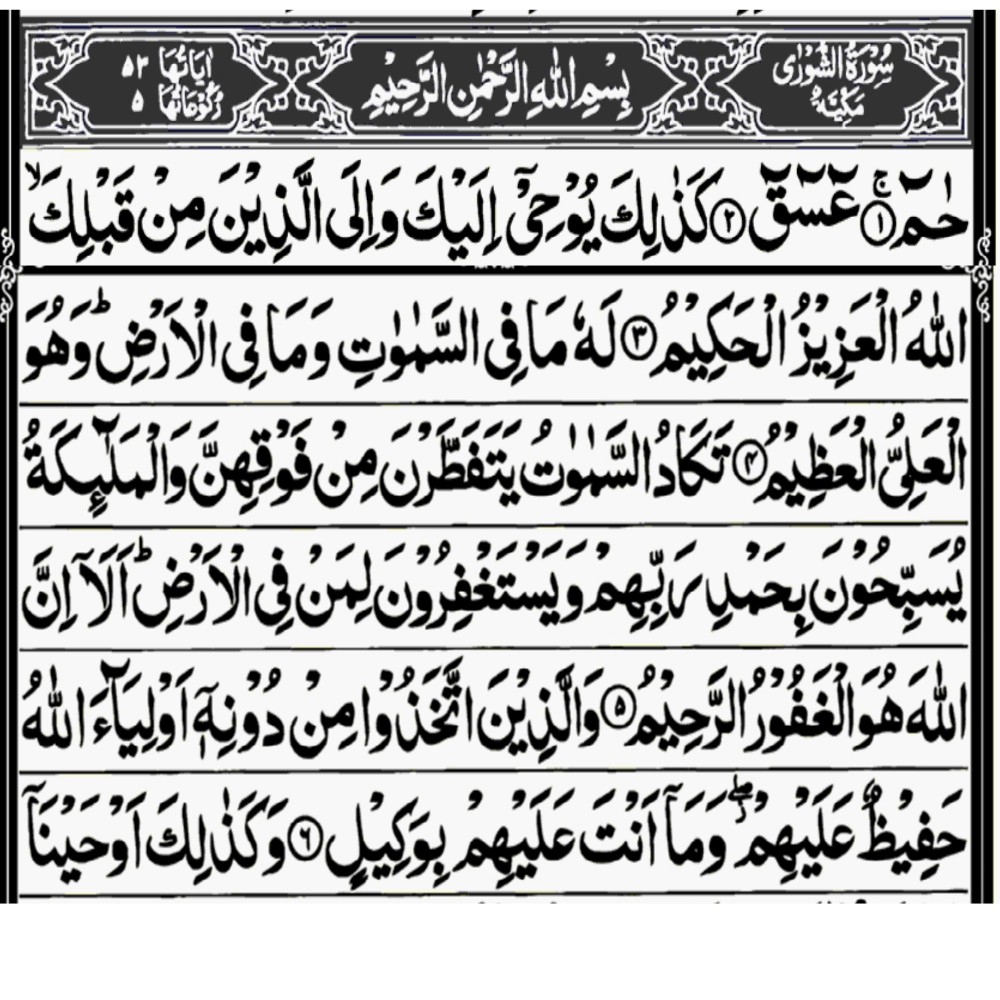 سُوْرَةُ الشُّوْرٰى مَكِّيَّةٌ
بِسْمِ اللّٰهِ الرَّحْمٰنِ الرَّحِيْمِ
اٰيَاتُهَا ٥٣ رُكُوْعَاتُهَا ٥
حٰمٓ ۚ ① عٓسٓقٓ ② كَذٰلِكَ يُوْحِيْٓ اِلَيْكَ وَاِلَى الَّذِيْنَ مِنْ قَبْلِكَ ۙ
اللّٰهُ الْعَزِيْزُ الْحَكِيْمُ ③ لَهٗ مَا فِي السَّمٰوٰتِ وَمَا فِي الْاَرْضِ ؕ وَهُوَ
الْعَلِيُّ الْعَظِيْمُ ④ تَكَادُ السَّمٰوٰتُ يَتَفَطَّرْنَ مِنْ فَوْقِهِنَّ وَالْمَلٰٓىِٕكَةُ
يُسَبِّحُوْنَ بِحَمْدِ رَبِّهِمْ وَيَسْتَغْفِرُوْنَ لِمَنْ فِي الْاَرْضِ ؕ اَلَاۤ اِنَّ
اللّٰهَ هُوَ الْغَفُوْرُ الرَّحِيْمُ ⑤ وَالَّذِيْنَ اتَّخَذُوْا مِنْ دُوْنِهٖۤ اَوْلِيَآءَ اللّٰهُ
حَفِيْظٌ عَلَيْهِمْ ۖؗ وَمَاۤ اَنْتَ عَلَيْهِمْ بِوَكِيْلٍ ⑥ وَكَذٰلِكَ اَوْحَيْنَاۤ